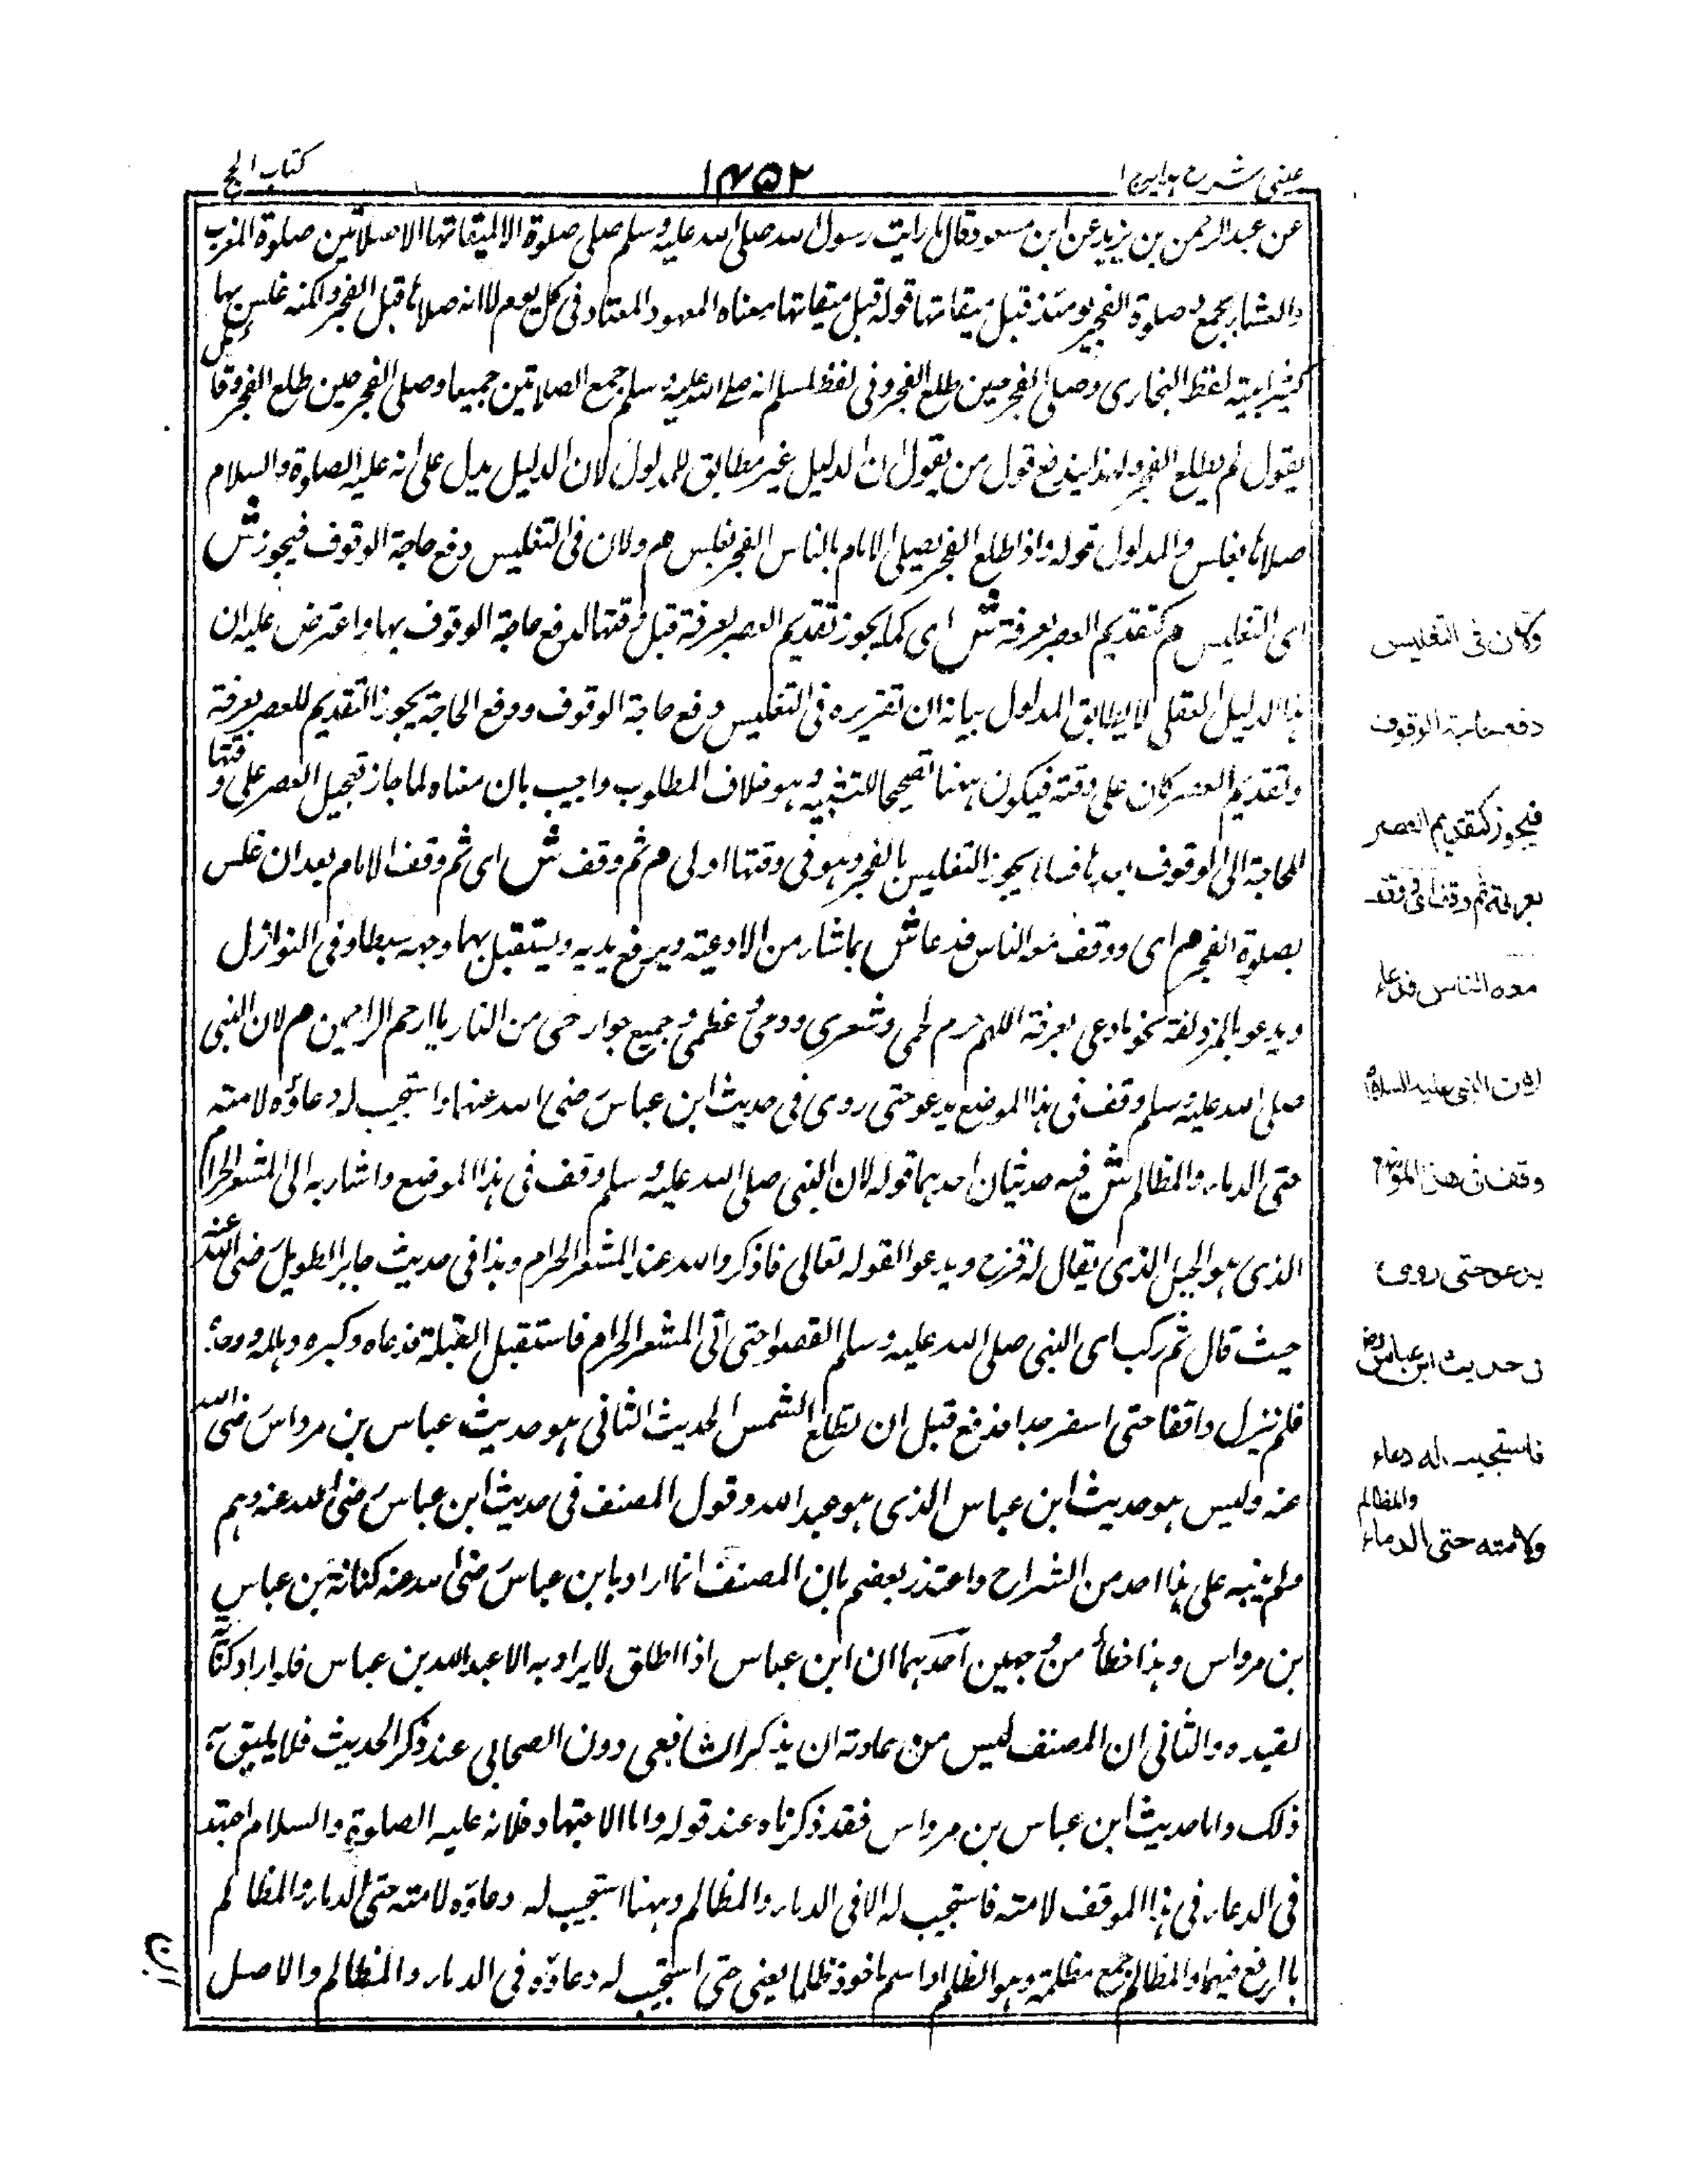 عینی شرح ہدایہ ج ۱
۱۴۵۲
كتاب الحج
عن عبد الرحمن بن يزيد عن ابن مسعود قال ما رايت رسول الله صلى الله عليه وسلم صلى صلوة الا لميقاتها الا صلاتين صلوة المغرب
والعشاء بجمع و صلوة الفجر يومئذ قبل ميقاتها قوله قبل ميقاتها معناه المعهود المعتاد فى كل يوم لا انه صلاها قبل الفجر ولكنه غلس بها
لفظ البخارى وصلى الفجر حين طلع الفجر وفى لفظ لمسلم انه صلى الله عليه وسلم جمع الصلاتين جميعا وصلى الفجر حين طلع الفجر وقائل
يقول لم يطلع الفجر ولهذا يندفع قول من يقول ان الدليل غير مطابق للمدلول لان الدليل يدل على انه عليه الصلوة والسلام
صلاها بغلس والمدلول قوله واذا طلع الفجر يصلى الامام بالناس الفجر بغلس م ولان فى التغليس دفع حاجة الوقوف فيجوز ش
اى التغليس م كتقديم العصر بعرفة ش اى كما يجوز تقديم العصر بعرفة قبل وقتها لدفع حاجة الوقوف بها واعترض عليه ان
هذا الدليل العقلى لا يطابق المدلول بيانه ان تقريره فى التغليس دفع حاجة الوقوف ودفع الحاجة يجوز التقديم للعصر بعرفة
وتقديم العصر كان على وقته فيكون ههنا تصحيحا للتشبيه وهو خلاف المطلوب واجيب بان معناه لما جاز تعجيل العصر على وقتها
للحاجة الى الوقوف بعدها فلان يجوز التغليس بالفجر وهو فى وقتها اولى م ثم وقف ش اى ثم وقف الامام بعد ان غلس
بصلوة الفجر م اى ووقف معه الناس فدعا ش بما شاء من الادعية ويرفع يديه ويستقبل بهما وجهه بسطا وفى النوازل
ويدعو بالمزدلفة نحو ما دعى بعرفة اللهم حرم لحمى وشعرى ودمى وعظمى وجميع جوارحى من النار يا ارحم الراحمين م لان النبى
صلى الله عليه وسلم وقف فى هذا الموضع يدعو حتى روى فى حديث ابن عباس رضى الله عنهما واستجيب له دعاؤه لامته
حتى الدماء والمظالم ش فيه حديثان احدهما قوله لان النبى صلى الله عليه وسلم وقف فى هذا الموضع واشار به الى المشعر الحرام
الذى هو الجبل الذى يقال له قزح ويدعو القوله تعالى فاذكروا الله عند المشعر الحرام وهذا فى حديث جابر الطويل رضى الله عنه
حيث قال ثم ركب اى النبى صلى الله عليه وسلم القصوا حتى اتى المشعر الحرام فاستقبل القبلة فدعاه وكبره وهلله ووحده
فلم يزل واقفا حتى اسفر جدا فدفع قبل ان تطلع الشمس الحديث الثانى هو حديث عباس بن مرداس رضى الله
عنه وليس هو حديث ابن عباس الذى هو عبد الله وقول المصنف فى حديث ابن عباس رضى الله عنه وهم
ولم ينبه على هذا احد من الشراح واعتذر بعضهم بان المصنف انما اراد بابن عباس رضى الله عنه كنانة بن عباس
بن مرداس وهذا خطأ من وجهين احدهما ان ابن عباس اذا اطلق لا يراد به الا عبد الله بن عباس فلو اراد كنانة
لقيده والثانى ان المصنف ليس من عادته ان يذكر التابعى دون الصحابى عند ذكر الحديث فلا يليق به
ذلك واما حديث ابن عباس بن مرداس فقد ذكرناه عند قوله واما الاجتهاد فلانه عليه الصلوة والسلام اجتهد
فى الدعاء فى هذا الموقف لامته فاستجيب له الا فى الدماء والمظالم وههنا استجيب له دعاؤه لامته حتى الدماء والمظالم
بالرفع فيهما والمظالم جمع مظلمة وهو الظلم او اسم ماخوذ ظلما يعنى حتى استجيب له دعاؤه فى الدماء والمظالم والاصل
ولان فى التغليس
دفع حاجة الوقوف
فيجوز كتقديم العصر
بعرفة ثم وقف ووقف
معه الناس فدعاء
لان النبى عليه السلام
وقف فى هذا الموضع
يدعو حتى روى
فى حديث ابن عباس رض
فاستجيب له دعاء
ولامته حتى الدماء والمظالم